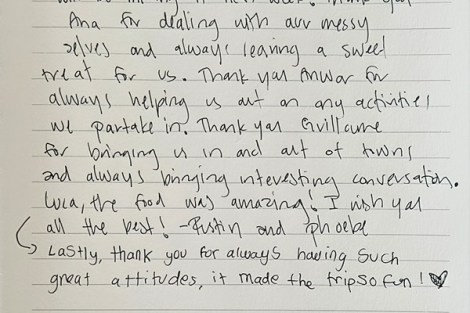 Ana for dealing with our messy
selves and always leaving a sweet
treat for us. Thank you Anwar for
always helping us out on any activities
we partake in. Thank you Guillaume
for bringing us in and out of towns
and always bringing interesting conversation.
Luca, the food was amazing! I wish you
all the best! -Justin and Phoebe
Lastly, thank you for always having such
great attitudes, it made the trip so fun!